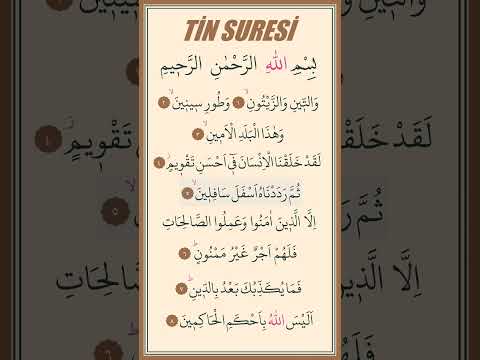 TİN SURESİ
بِسْمِ اللّٰهِ الرَّحْمٰنِ الرَّح۪يمِ
وَالتّ۪ينِ وَالزَّيْتُونِۙ ١ وَطُورِ س۪ين۪ينَۙ ٢
وَهٰذَا الْبَلَدِ الْاَم۪ينِۙ ٣
لَقَدْ خَلَقْنَا الْاِنْسَانَ ف۪ٓي اَحْسَنِ تَقْو۪يمٍۘ ٤
ثُمَّ رَدَدْنَاهُ اَسْفَلَ سَافِل۪ينَۙ ٥
اِلَّا الَّذ۪ينَ اٰمَنُوا وَعَمِلُوا الصَّالِحَاتِ
فَلَهُمْ اَجْرٌ غَيْرُ مَمْنُونٍۜ ٦
فَمَا يُكَذِّبُكَ بَعْدُ بِالدّ۪ينِۜ ٧
اَلَيْسَ اللّٰهُ بِاَحْكَمِ الْحَاكِم۪ينَ ٨